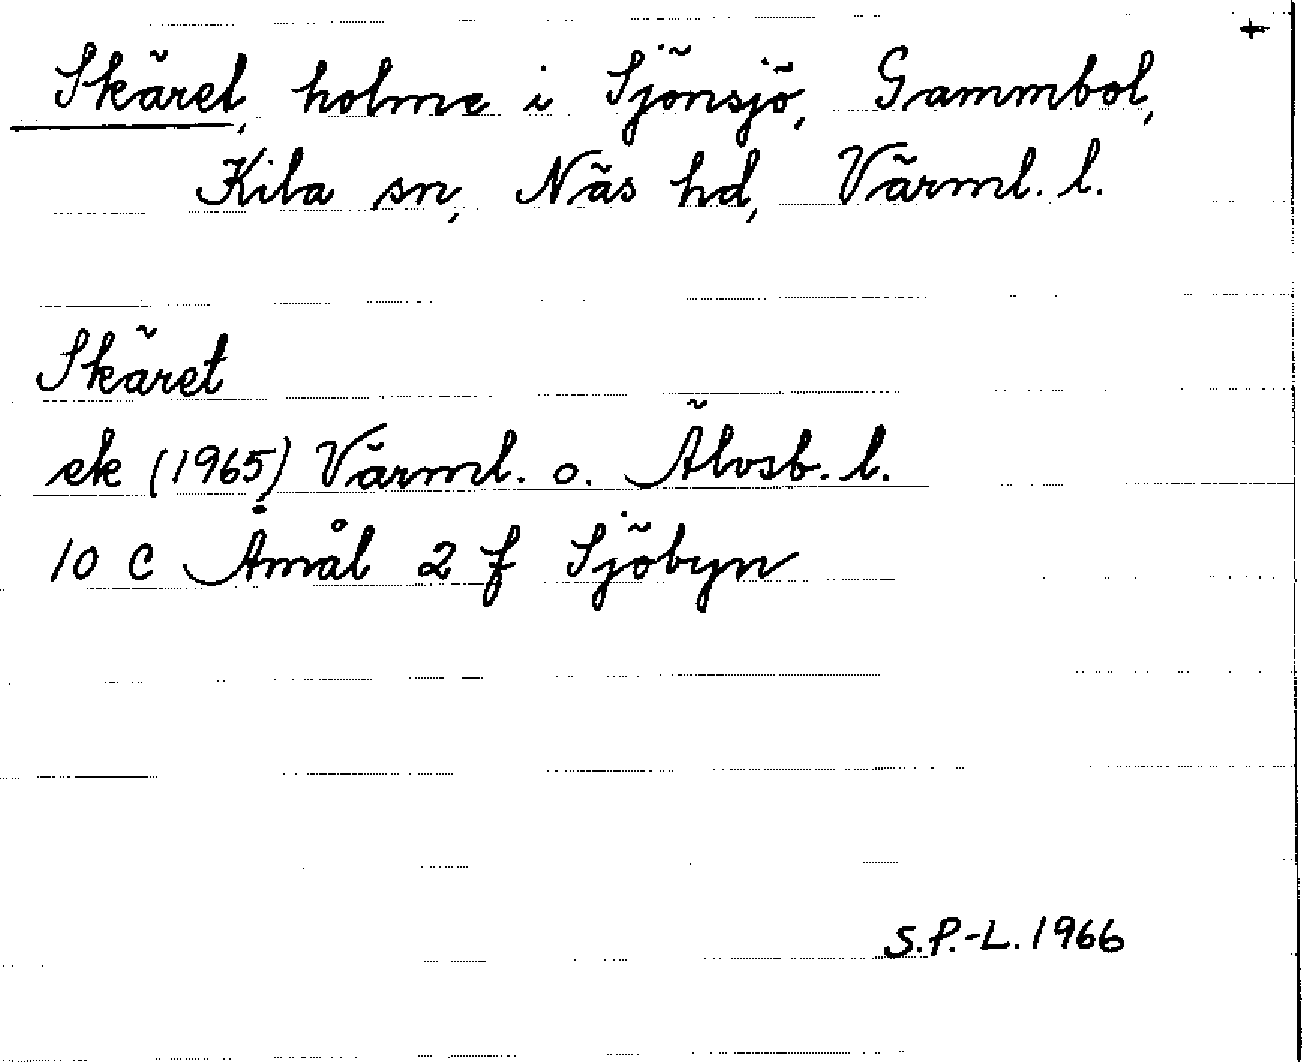 +
Skäret, holme i Sjönsjö, Gammbol,
Kila sn, Näs hd, Värml. l.
Skäret
ek (1965) Värml. o. Älvsb. l.
10 C Åmål 2 f Sjöbyn
S.P.-L. 1966